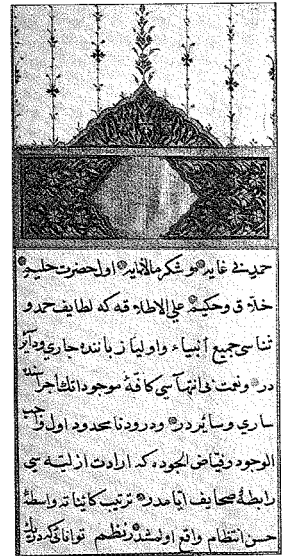 حمد بی غایه و شکر مالانهایه اول حضرت حلیم
خلاق و حکیم علی الاطلاقه که لطایف حمد و
ثناسی جمیع أنبیاء و اولیا زباننده جاری و دایر
در و نعت بی انتهاسی کافهٔ موجوداتك اجراسنده
ساری و سائر در و درود نامحدود اول واجب
الوجود و فیاض الجوده که ارادت ازلیه سی
رابطهٔ صحایف ایامدر ترتیب کائناته واسطهٔ
حسن انتظام واقع اولمشدر نظم توانایی که در یك